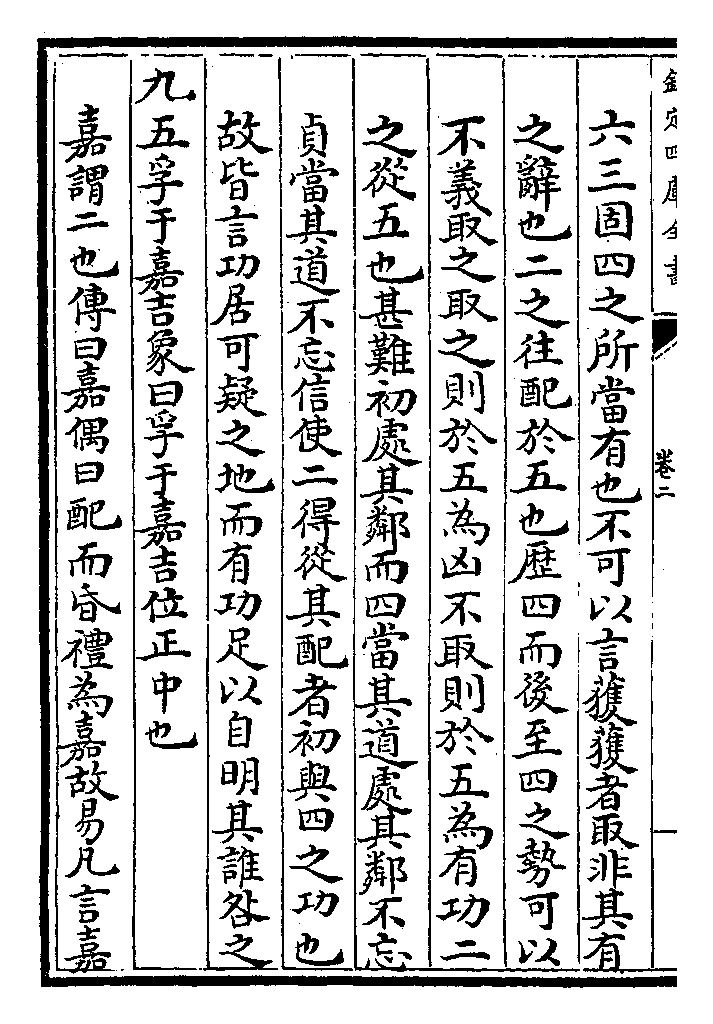 欽定四庫全書
卷二
六三固四之所當有也不可以言獲獲者取非其有
之辭也二之往配於五也歷四而後至四之勢可以
不義取之取之則於五為凶不取則於五為有功二
之從五也甚難初處其鄰而四當其道處其鄰不忘
貞當其道不忘信使二得從其配者初與四之功也
故皆言功居可疑之地而有功足以自明其誰咎之
九五孚于嘉吉象曰孚于嘉吉位正中也
嘉謂二也傳曰嘉偶曰配而昏禮為嘉故易凡言嘉